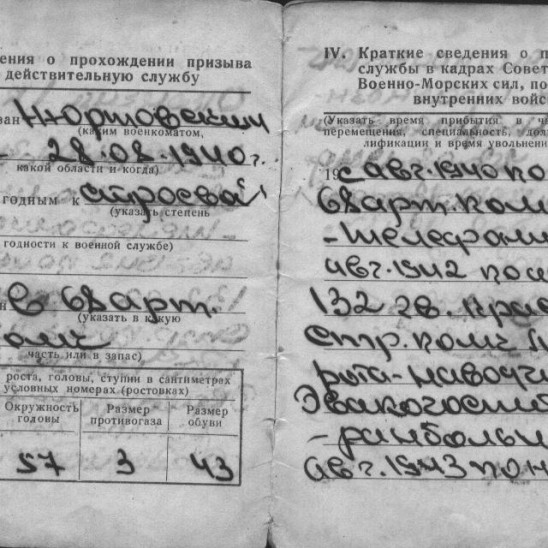 ения о прохождении призыва
действительную службу
ван
(каким военкоматом,
28.08.1940 г.
какой области и когда)
годным к строевой
(указать степень
годности к военной службе)
н в 68 арт.
(указать в какую
часть или в запас)
роста, головы, ступни в сантиметрах
условных номерах (ростовках)
Окружность головы Размер противогаза Размер обуви
57 3 43
IV. Краткие сведения о п
службы в кадрах Совет
Военно-Морских сил, по
внутренних войс
(Указать время прибытия в ч
перемещения, специальность, дол
лификации и время увольнени
19 с авг. 1940 по
68 арт. пол
-телефони
авг. 1942 по
132 гв.
стр. полк
рота-наводчи
Эвакогоспит
-ранболь
авг. 1943 по н